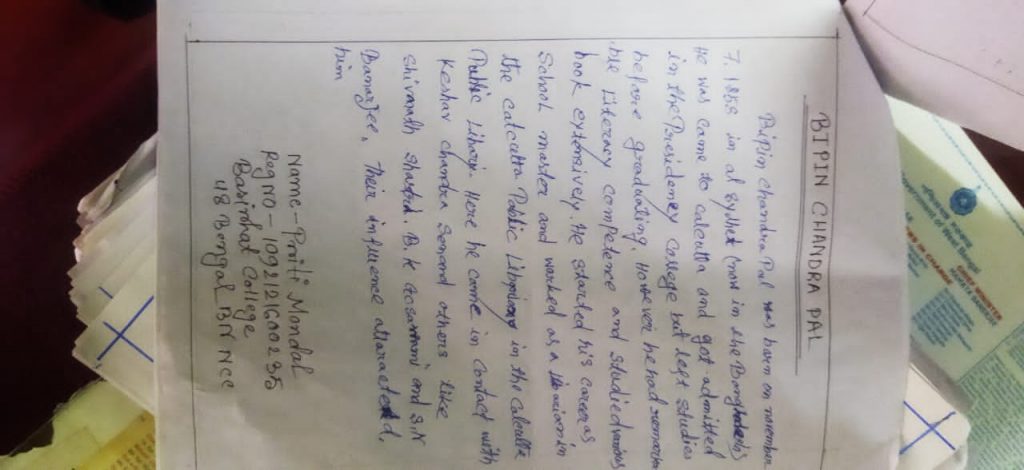 BIPIN CHANDRA PAL
Bipin chandra Pal was born on november
7. 1858 in al sylhet (now in the Bangladesh)
He was came to calcutta and got admitted
in the Presidency college but left studies
before graduating. however he had
ble Literacy competence and studied
book extensively. He started his career as
School master and worked as a in
the calcutta Public Library in the Calcutta
Public Library. Here he came in contact with
Keshar chandra Senand others like
Shivanath Shastri. B. k Gosammi and S.N
BanarJee. Their influence attracted.
him
Name-Priti Mondal
Reg No-
Basirhat College
48 Bengal BN NCC